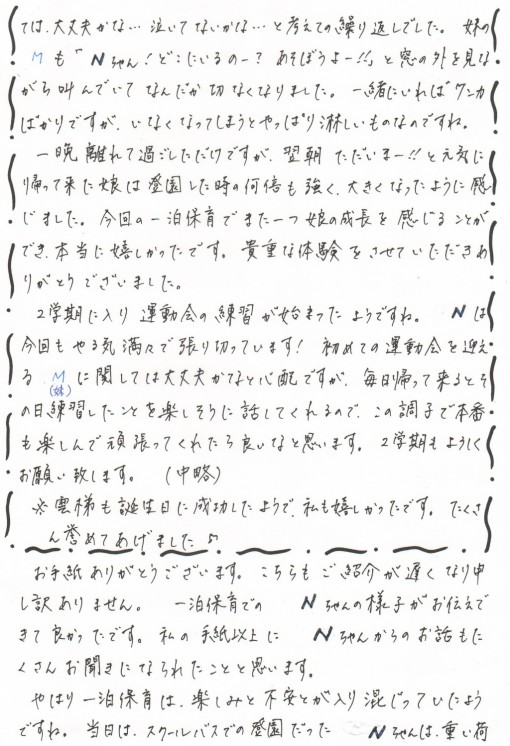 ては、大丈夫かな…泣いてないかな…と考えての繰り返しでした。妹の
Mも「Nちゃん！どこにいるのー？あそぼうよー!!」と窓の外を見な
がら叫んでいてなんだか切なくなりました。一緒にいればケンカ
ばかりですが、いなくなってしまうとやっぱり淋しいものなのですね。
一晩離れて過ごしただけですが、翌朝ただいまー!!と元気に
帰って来た娘は登園した時の何倍も強く、大きくなったように感
じました。今回の一泊保育でまた一つ娘の成長を感じることが
でき、本当に嬉しかったです。貴重な体験をさせていただきあ
りがとうございました。
2学期に入り運動会の練習が始まったようですね。Nは
今回もやる気満々で張り切っています！初めての運動会を迎え
るMに関しては大丈夫かなと心配ですが、毎日帰って来るとそ
(妹)
の日練習したことを楽しそうに話してくれるので、この調子で本番
も楽しんで頑張ってくれたら良いなと思います。2学期もよろしく
お願い致します。(中略)
※雲梯も誕生日に成功したようで、私も嬉しかったです。たくさ
ん誉めてあげました♪
お手紙ありがとうございます。こちらもご紹介が遅くなり申
し訳ありません。一泊保育でのNちゃんの様子がお伝えで
きて良かったです。私の手紙以上にNちゃんからのお話もた
くさんお聞きになられたことと思います。
やはり一泊保育は、楽しみと不安とが入り混じっていたよう
ですね。当日は、スクールバスでの登園だったNちゃんは、重い荷